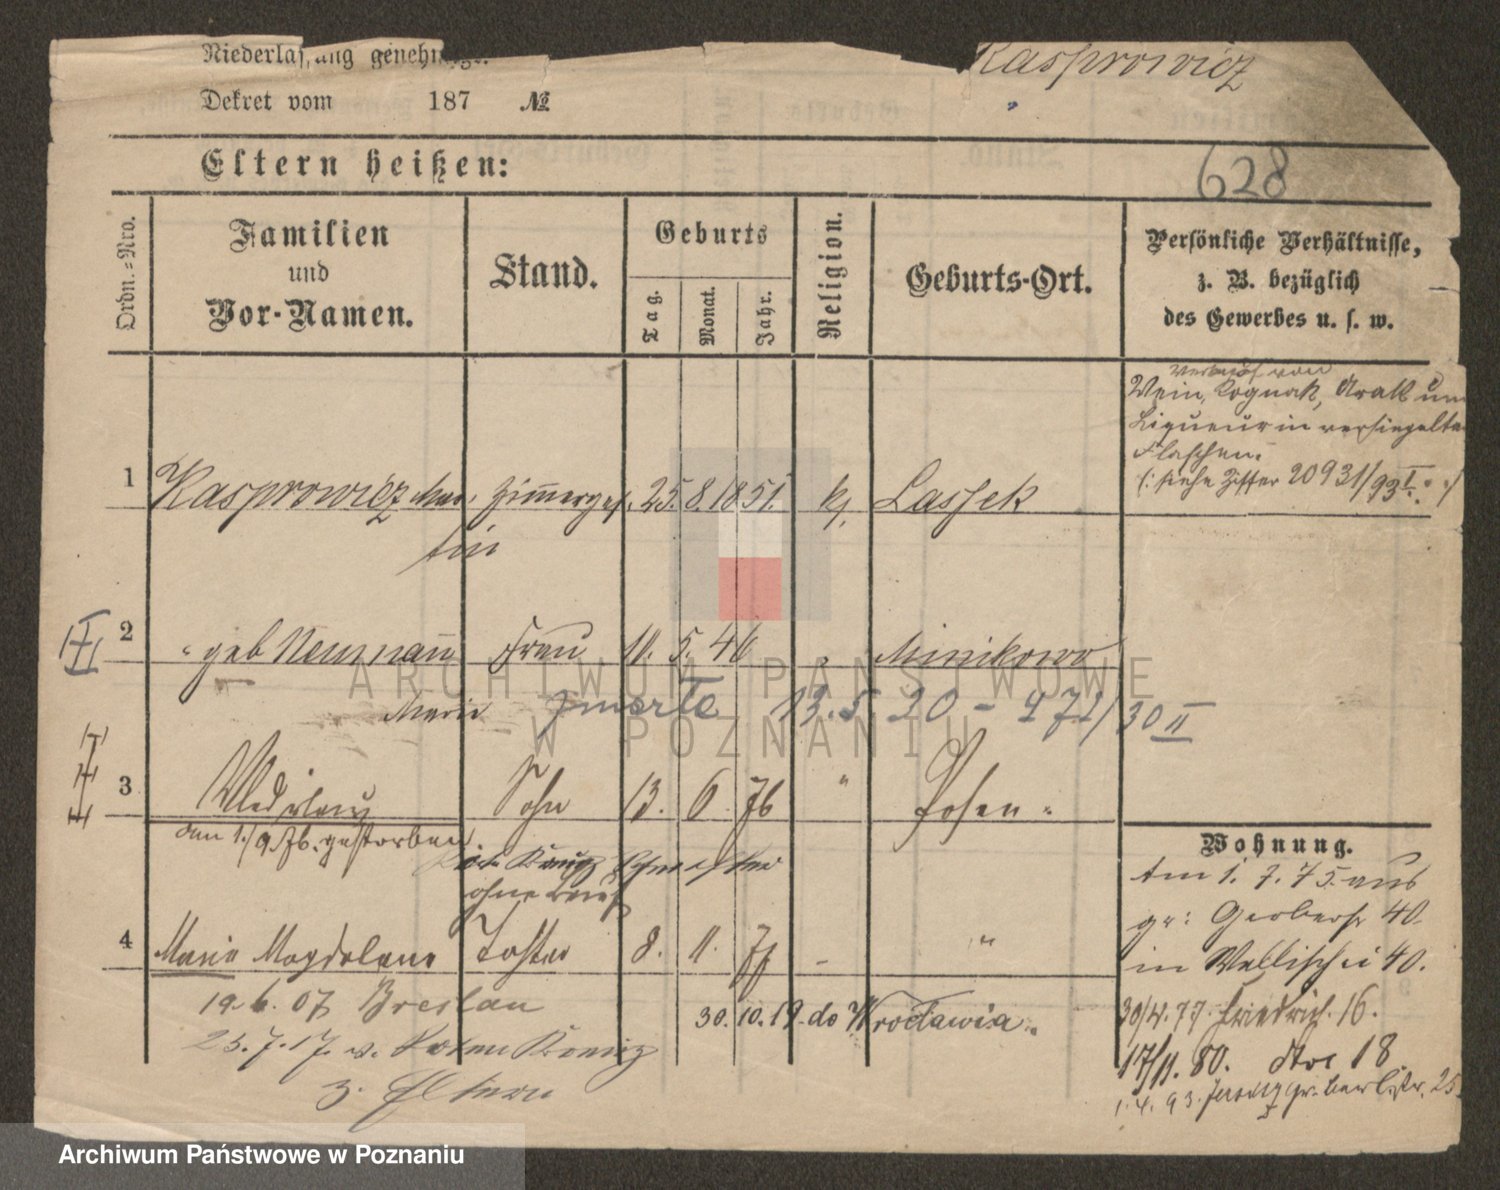 Niederlassung genehmigt.
Kasprowicz
Dekret vom 187 №
Eltern heißen:
628
Ordn.=Nro.
Familien
und
Vor-Namen.
Stand.
Geburts
Tag.
Monat.
Jahr.
Religion.
Geburts-Ort.
Persönliche Verhältnisse,
z. B. bezüglich
des Gewerbes u. s. w.
Verkauf von
Wein, Kognak, Arak un
Liqueur in versiegelte
Flaschen.
(: siehe Ziffer 20931/93 I. :)
1 Kasprowicz Mar- Zimmerges. 25. 8. 1851. k. Lassek
tin
2 " geb Neumann Frau 11. 5. 46 " Minikowo
Marie zmarła 13.5 30 - 471/30 II
3 Wladislaus Sohn 13. 6. 76 " Posen.
den 1./9. 76. gestorben
Kreuz Schwester
ohne Beruf
4 Marie Magdalena Tochter 8. 11. 77 - "
19. 6. 07 Breslau
30. 10. 19. do Wrocławia.
25. 7. 17. v. Roten Kreuz
z. Eltern
Wohnung.
Am 1. 7. 75. aus
gr: Gerberstr 40.
in Wallischei 40.
30/4. 77. Friedrich. 16.
17/11. 80. dto 18
1. 4. 93. gr. Gerberstr. 25.
ARCHIWUM PAŃSTWOWE
W POZNANIU
Archiwum Państwowe w Poznaniu